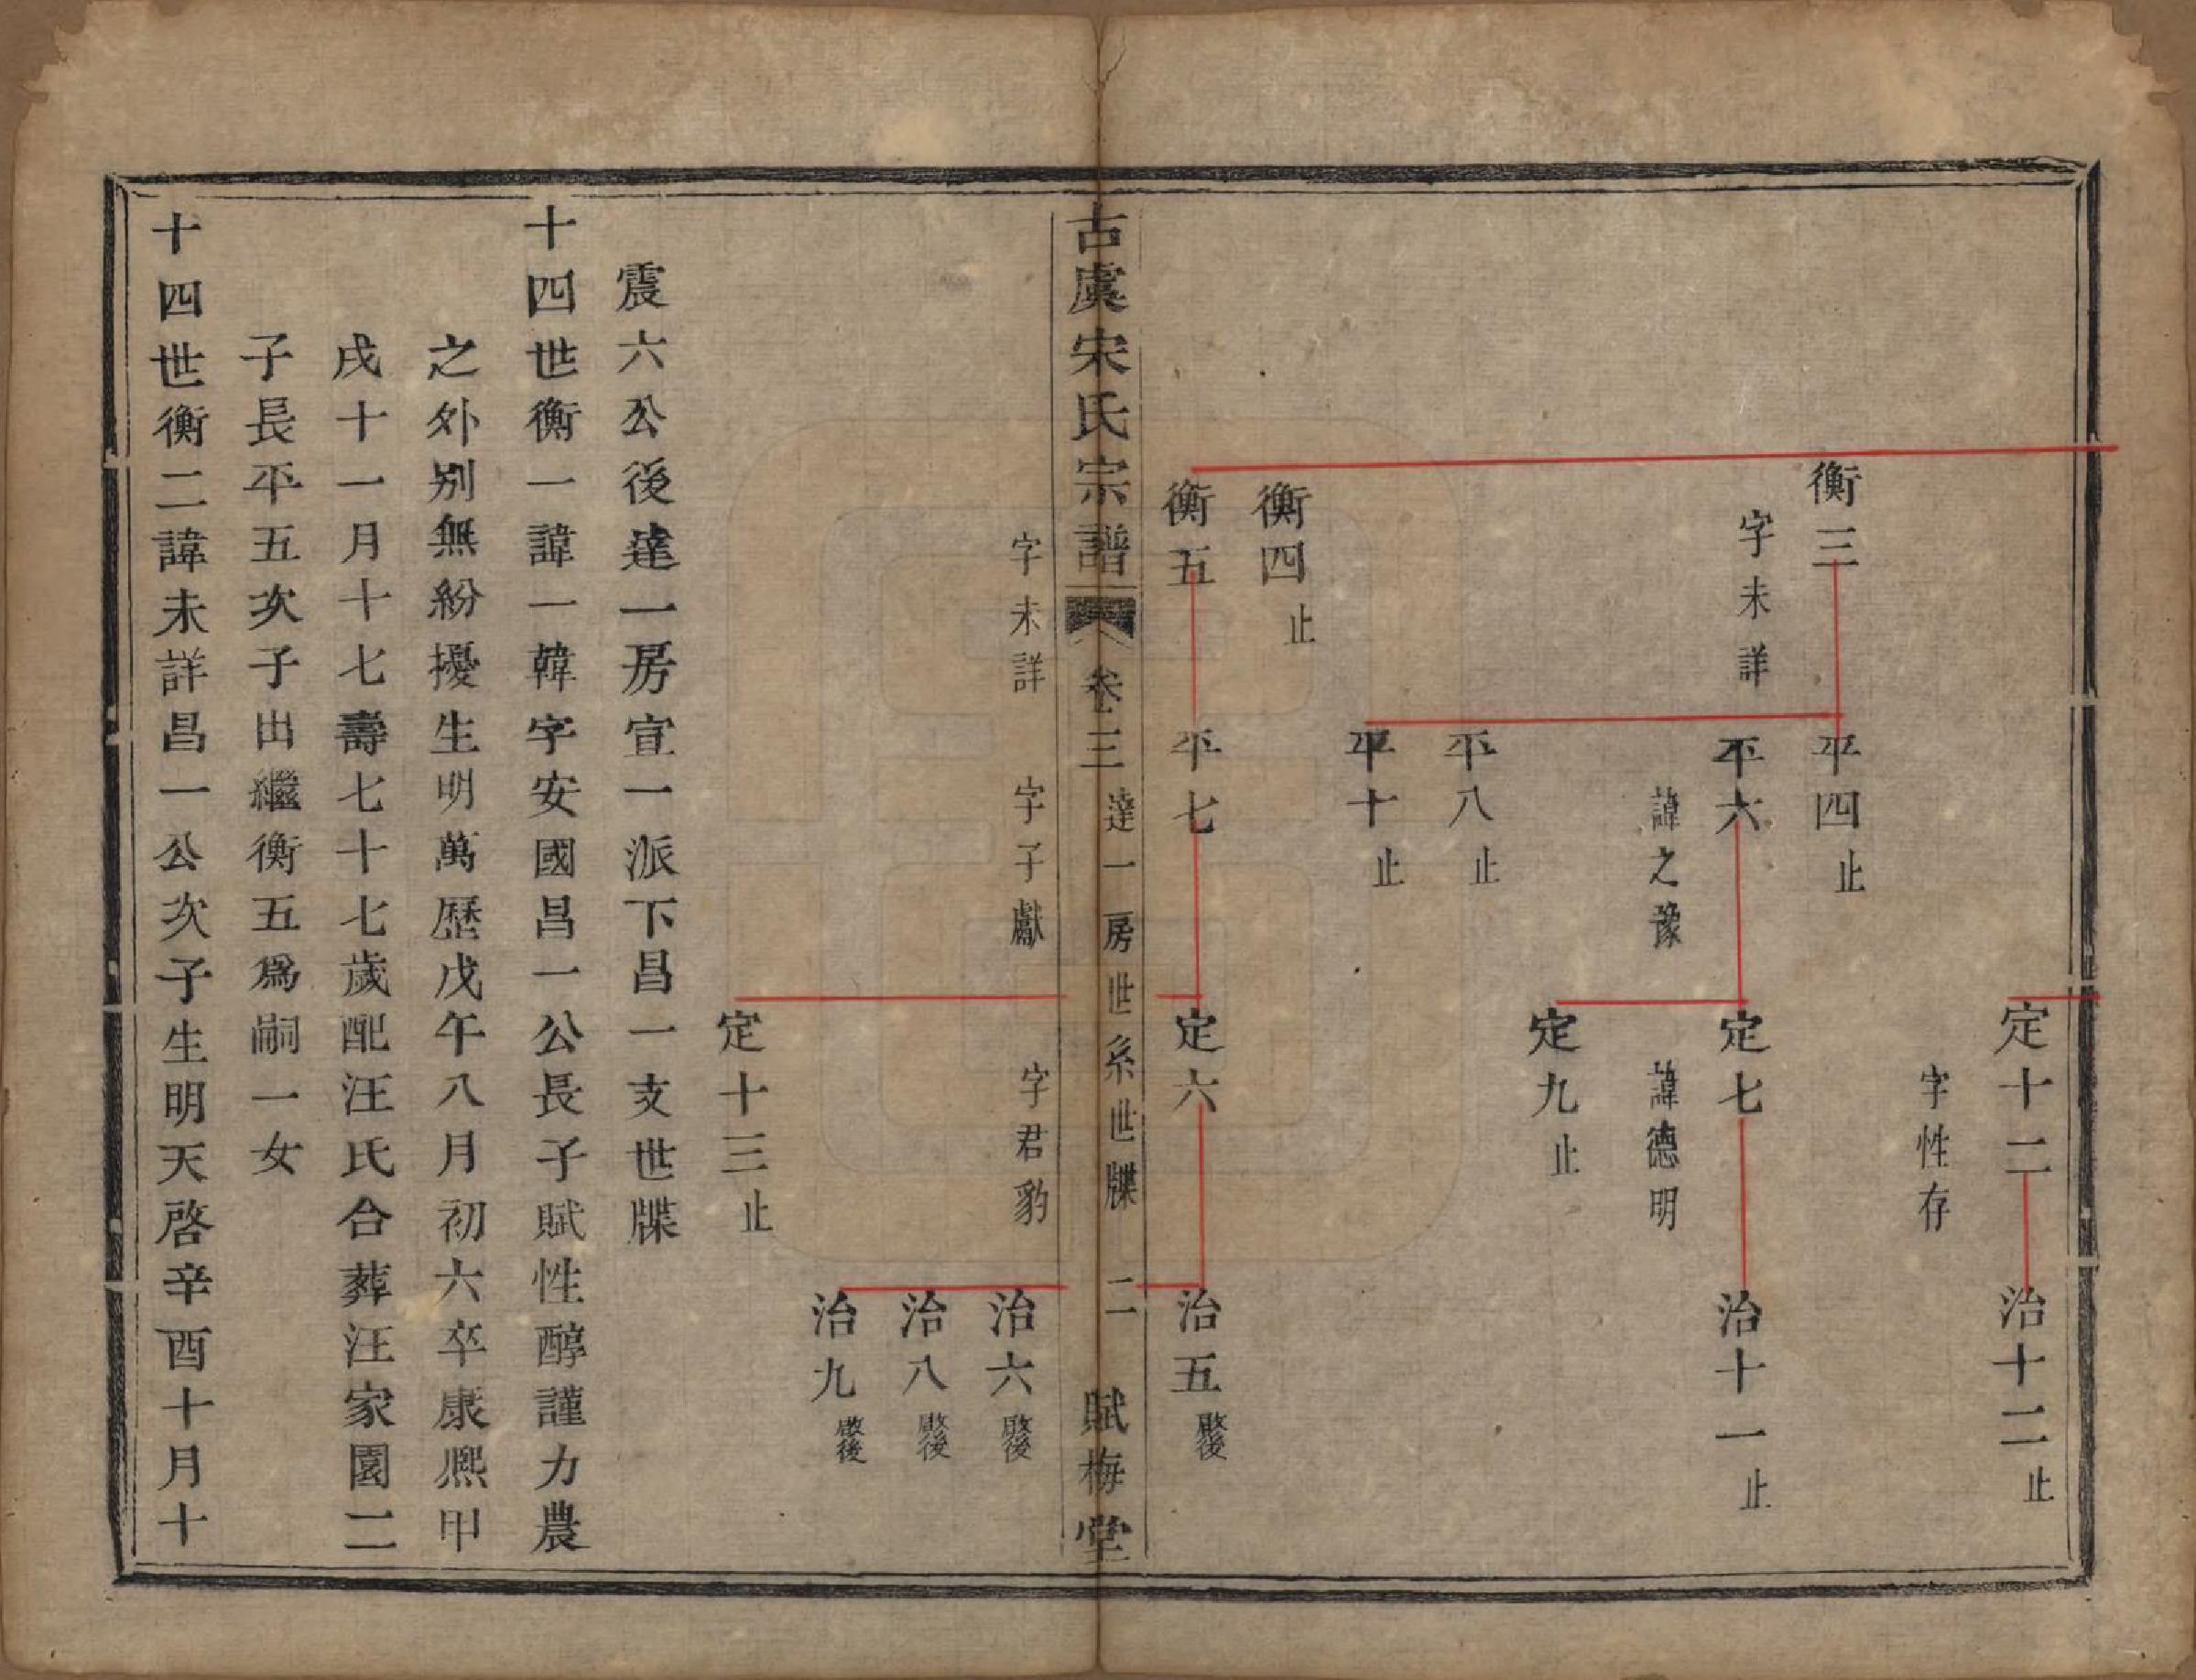 定十二
字性存
治十二止
衡三
字未詳
平四止
平六
諱之豫
定七
諱德明
治十一止
定九止
平八止
平十止
衡四止
衡五
字未詳
平七
字子獻
定六
字君豹
治五啟後
治六啟後
治八啟後
治九啟後
定十三止
古虞宋氏宗譜
卷三
達一房世系世牒
二
賦梅堂
震六公後達一房宣一派下昌一支世牒
十四世衡一諱一韓字安國昌一公長子賦性醇謹力農
之外別無紛擾生明萬歷戊午八月初六卒康熙甲
戌十一月十七壽七十七歲配汪氏合葬汪家園二
子長平五次子出繼衡五為嗣一女
十四世衡二諱未詳昌一公次子生明天啓辛酉十月十